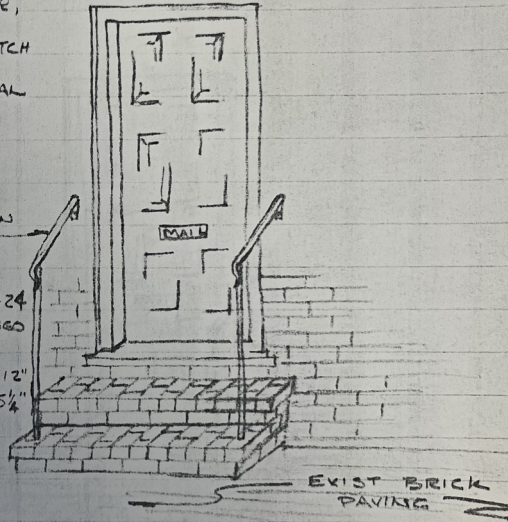 TCH
AL
MAIL
24
12"
5¼"
EXIST BRICK
PAVING